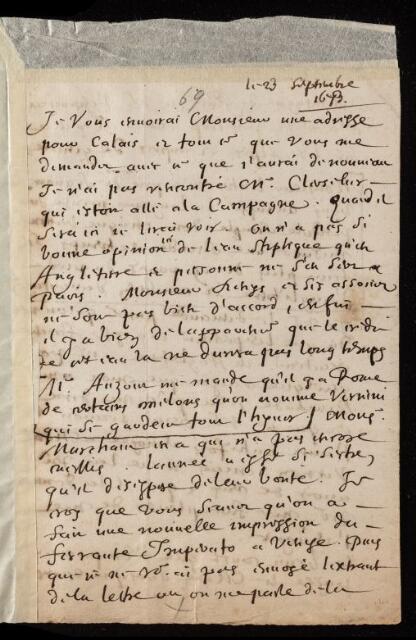 69
le 23 Septembre
1673.
Je Vous envoirai Monsieur une adresse
pour Calais et tout ce que vous me
demander avec ce que j'aurai de nouveau
Je n'ai pas rencontré Mr. Clerselier
qui estoit allé a la Campagne. quand il
sera ici je l'irai voir. on n'a pas si
bonne opinion ici de l'eau styptique qu'en
Angleterre et personne ne s'en sert a
Paris. Monsieur Denys et ses associez
ne sont pas bien d'accord, enfin
il y a bien de l'apparence que le credit
de cet eau la ne durera pas long temps
Mr. Auzout me mande qu'il y a a Rome
de certains melons qu'on nomme Vernini
qui se gardent tout l'hyver / Mons.
Marchand en a qui n'a pas encore
cueillis. l'année a esté si
qu'il de leur bonté. Je
croy que vous scavez qu'on a
fait une nouvelle impression du
ferrante Imperato a Venise. Puis
que je ne vous ai pas envoyé l'extrait
de la lettre ou on me parle de la